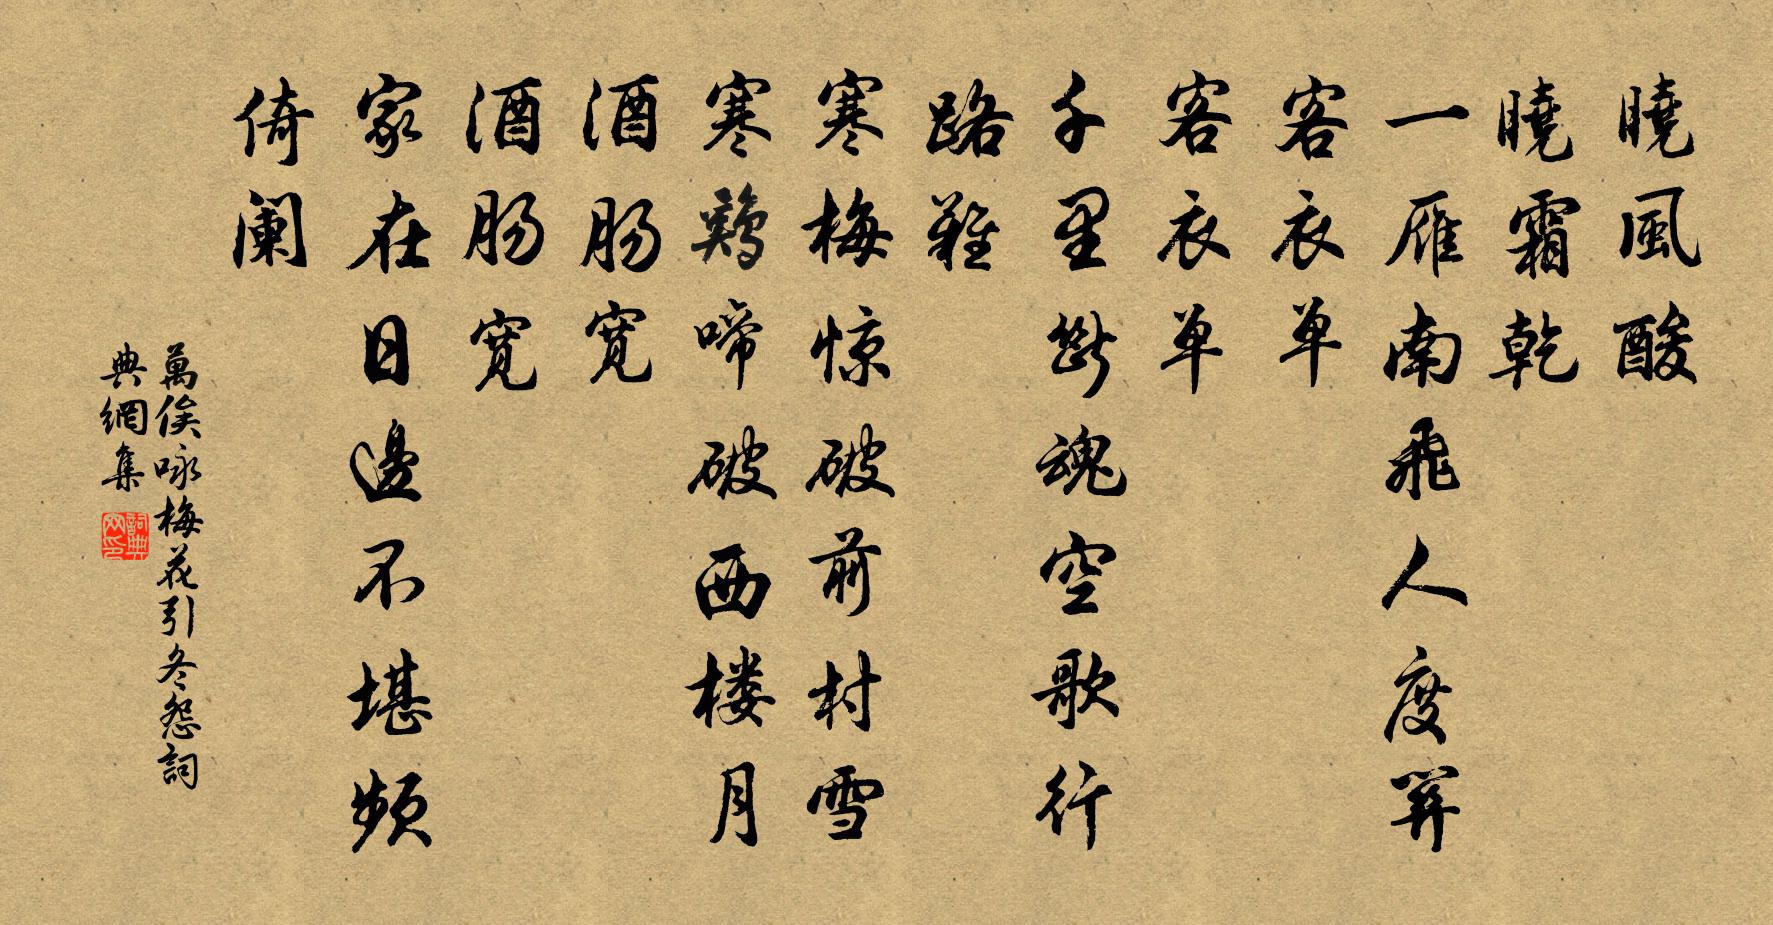 曉風酸
曉霜乾
一雁南飛人度關
客衣单
客衣单
千里斷魂空歌行
路難
寒梅惊破前村雪
寒鷄啼破西楼月
酒肠寬
酒肠寬
家在日邊不堪頻
倚阑
萬俟咏梅花引冬怨詞
典網集
詞典网印